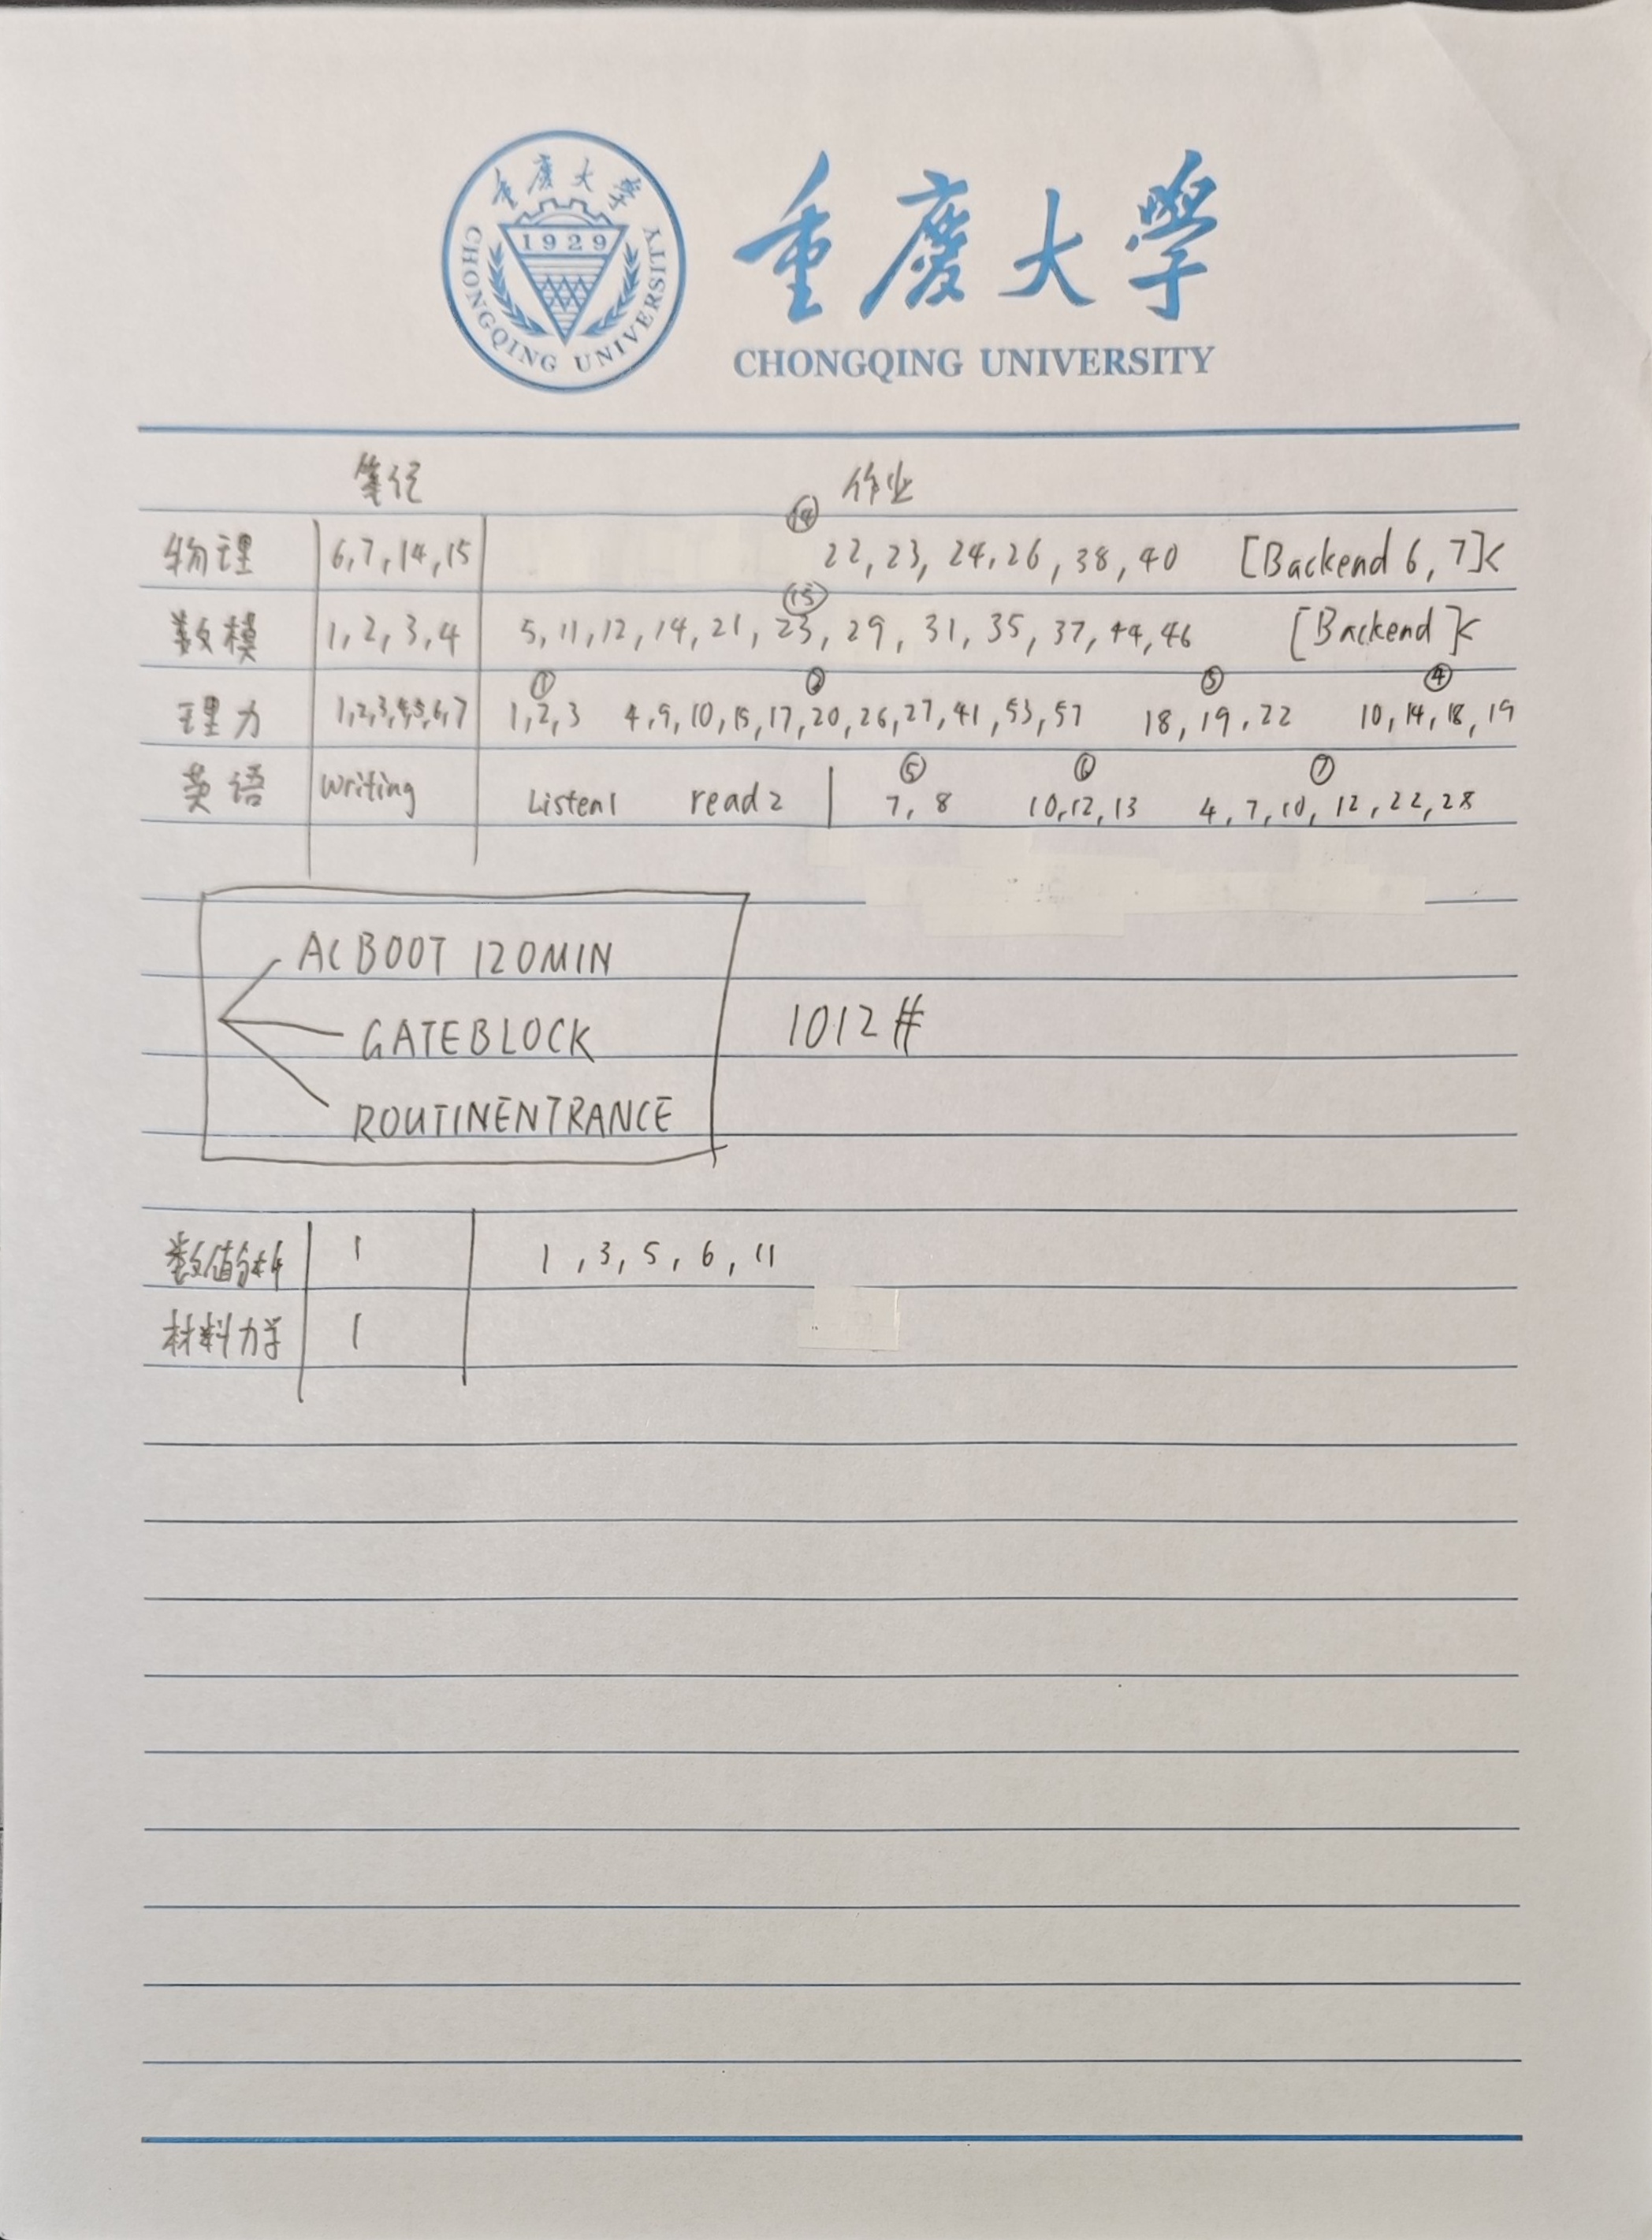 重慶大學
1929
CHONGQING UNIVERSITY
重慶大學
CHONGQING UNIVERSITY
笔记 作业
⑭
物理 6,7,14,15 22,23,24,26,38,40 [Backend 6,7]<
⑮
数模 1,2,3,4 5,11,12,14,21,23,29,31,35,37,44,46 [Backend]<
① ② ③ ④
理力 1,2,3,4,5,6,7 1,2,3 4,9,10,15,17,20,26,27,41,53,57 18,19,22 10,14,18,19
⑤ ⑥ ⑦
英语 Writing Listen1 read2 7,8 10,12,13 4,7,10,12,22,28
ACBOOT 120MIN
GATEBLOCK 1012#
ROUTINENTRANCE
数值分析 1 1,3,5,6,11
材料力学 1